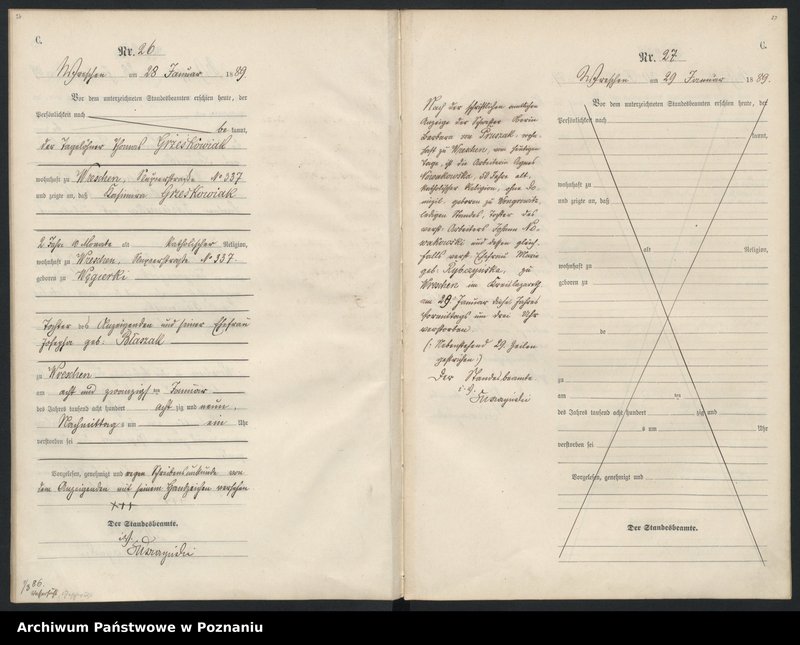 C.
Nr. 26
Wreschen am 28 Januar 1889
Vor dem unterzeichneten Standesbeamten erschien heute, der
Persönlichkeit nach
be kannt,
der Tagelöhner Thomas Grześkowiak
wohnhaft zu Wreschen, No 337
und zeigte an, daß Kasimira Grześkowiak
2 Jahre Monate alt katholischer Religion,
wohnhaft zu Wreschen, No 337
geboren zu Węgierki
Tochter des Anzeigenden und seiner Ehefrau
Josepha geb. Błaszak
zu Wreschen
am acht und zwanzigsten Januar
des Jahres tausend acht hundert acht zig und neun,
Nachmittags um ein Uhr
verstorben sei
Vorgelesen, genehmigt und wegen Schreibensunkunde von
dem Anzeigenden mit seinem Handzeichen versehen
+++
Der Standesbeamte.
27
C.
Nr. 27
Wreschen am 29 Januar 1889.
Vor dem unterzeichneten Standesbeamten erschien heute, der
Persönlichkeit nach
kannt,
wohnhaft zu
und zeigte an, daß
alt Religion,
wohnhaft zu
geboren zu
de
zu
am ten
des Jahres tausend acht hundert zig und
s um Uhr
verstorben sei
Vorgelesen, genehmigt und
Der Standesbeamte.
Nach der schriftlichen amtlichen
Anzeige der Schwester Oberin
Barbara von Pruszak wohn-
haft zu Wreschen, vom heutigen
Tage, ist die Arbeiterin Agnes
Nowakowska, 50 Jahre alt,
katholischer Religion, ohne Do-
mizil, geboren zu
ledigen Standes, Tochter des
verst. Arbeiters Johann No-
wakowski und dessen gleich-
falls verst. Ehefrau Marie
geb. Rybczynska, zu
Wreschen im Kreislazareth
am 29 Januar dieses Jahres
Vormittags um drei Uhr
verstorben
(: Nebenstehend 29 Zeilen
gestrichen :)
Der Standesbeamte.
Archiwum Państwowe w Poznaniu